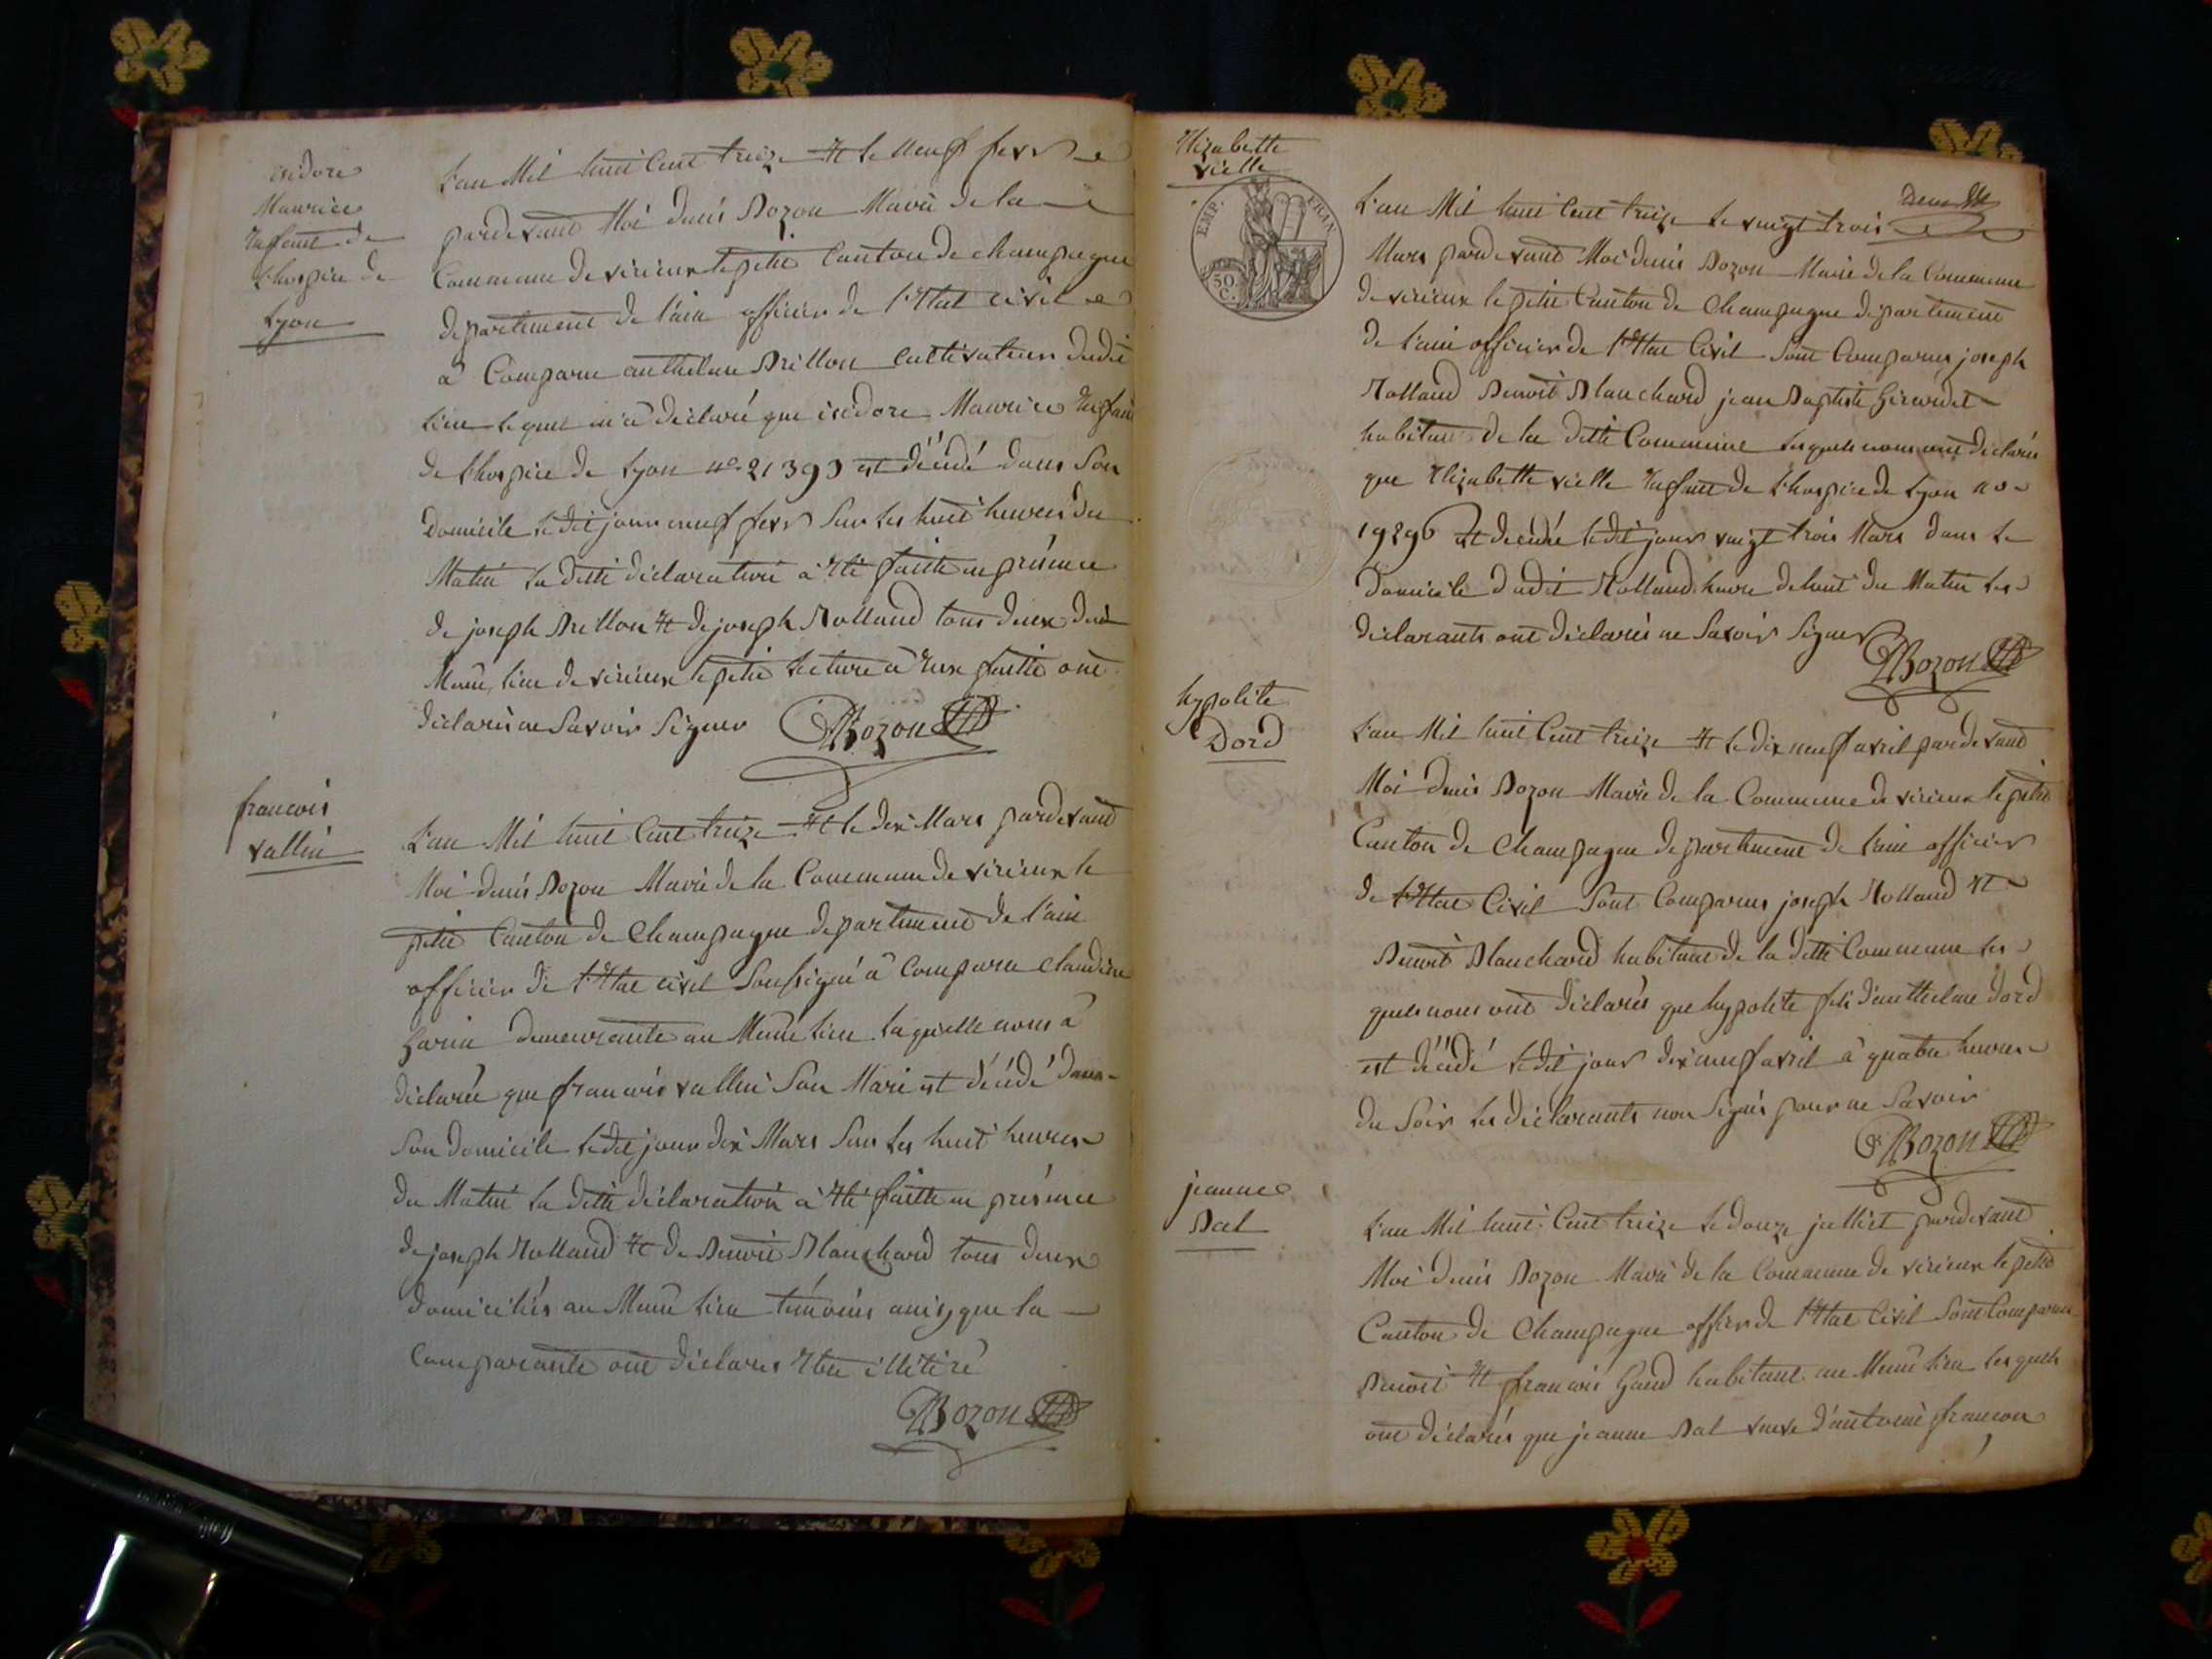 isidore
Maurice
Enfant de
L'hospice de
Lyon
L'an Mil huit Cent treize Et le neuf fevr
pardevant Moi denis Bozon Maire de la
Commune de virieux le petit Canton de champagne
departement de l'ain officier de l'Etat civil
à Comparu anthelme Brillon cultivateur dudit
lieu lequel m'a déclaré que isidore Maurice Enfant
de L'hospice de Lyon no 21393 est décédé dans Son
domicile le dit jour neuf fevr Sur les huit heures du
Matin La ditte déclaration à été faitte en présence
de joseph Brillon Et de joseph Rolland tous deux du
Même lieu de virieux le petit Lecture à Eux faitte ont
déclaré ne Savoir Signer Bozon
francois
vallin
L'an Mil huit Cent treize Et le dix Mars pardevant
Moi denis Bozon Maire de la Commune de virieux le
petit Canton de Champagne departement de l'ain
officier de l'Etat civil Soussigné à Comparu claudine
Garin demeurante au Même lieu laquelle nous à
déclarée que francois vallin Son Mari est décédé dans
Son domicile le dit jour dix Mars Sur les huit heures
du Matin La ditte déclaration à été faitte en présence
de joseph Rolland Et de Benoit Blanchard tous deux
domiciliés au Même lieu témoins ainsy que la
Comparante ont déclarés Etre illitiré
Bozon
Elizabette
vielle
EMP. FRAN
50
C.
L'an Mil huit Cent treize Le vingt trois
Mars pardevant Moi denis Bozon Maire de la Commune
de virieux le petit Canton de Champagne departement
de l'ain officier de l'Etat Civil Sont Comparus joseph
Rolland Benoit Blanchard jean Baptiste Girardet
habitant de la ditte Commune Lesquels nous ont déclarés
que Elizabette vielle Enfant de L'hospice de Lyon no
19296 Est décédé le dit jour vingt trois Mars dans le
domicile dudit Rolland heure de huit du Matin Les
déclarants ont déclarés ne Savoir Signer
Bozon
hypolite
Dord
L'an Mil huit Cent treize Et le dix neuf avril pardevant
Moi denis Bozon Maire de la Commune de virieux le petit
Canton de Champagne departement de l'ain officier
de l'Etat Civil Sont Comparus joseph Rolland Et
Benoit Blanchard habitant de la ditte Commune Les
quels nous ont déclarés que hypolite fils d'anthelme Dord
est décédé le dit jour dix neuf avril à quatre heures
du Soir Les déclarants non Signés pour ne Savoir
Bozon
jeanne
Bal
L'an Mil huit Cent treize Le douze juilliet pardevant
Moi denis Bozon Maire de la Commune de virieux le petit
Canton de Champagne officier de l'Etat Civil Sont Comparus
Benoit Et francois Gand habitant au Même lieu lesquels
ont déclarés que jeanne Bal veuve d'antoine francon